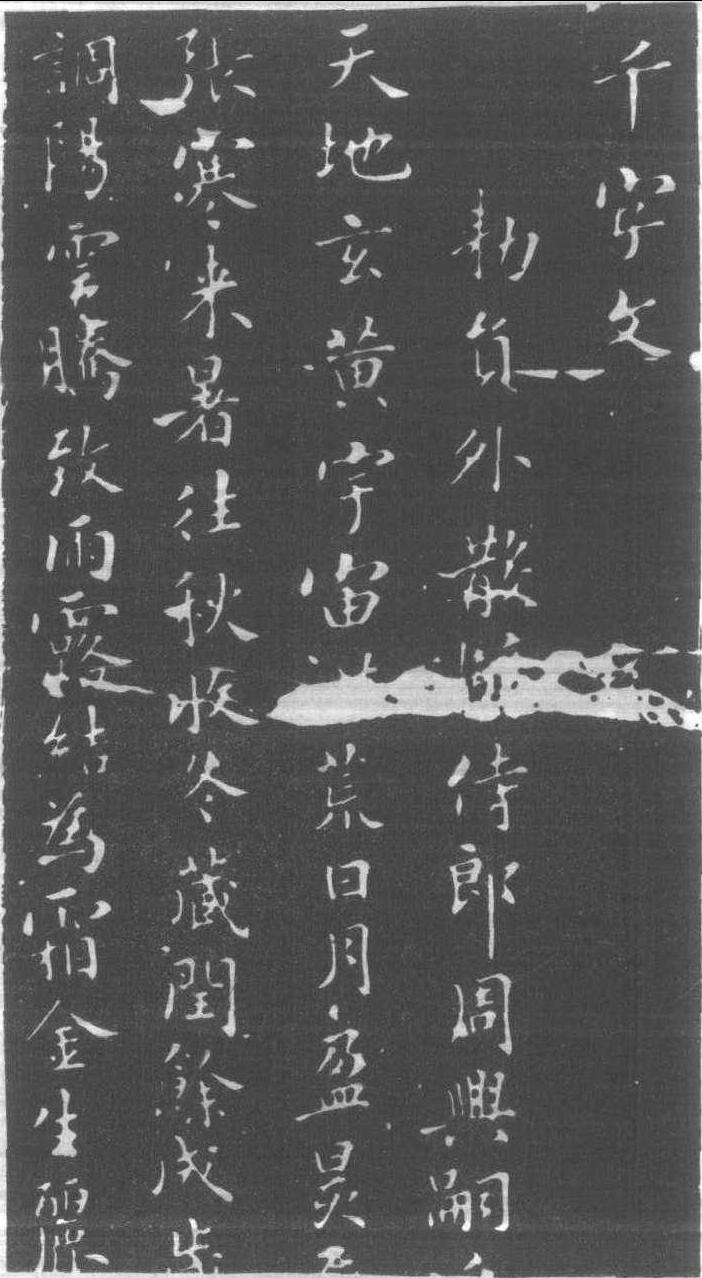 千字文
勑員外散侍郎周興嗣
天地玄黃宇宙荒日月盈昃
張寒来暑往秋收冬藏閏餘成歲
調陽雲騰致雨露結為霜金生麗